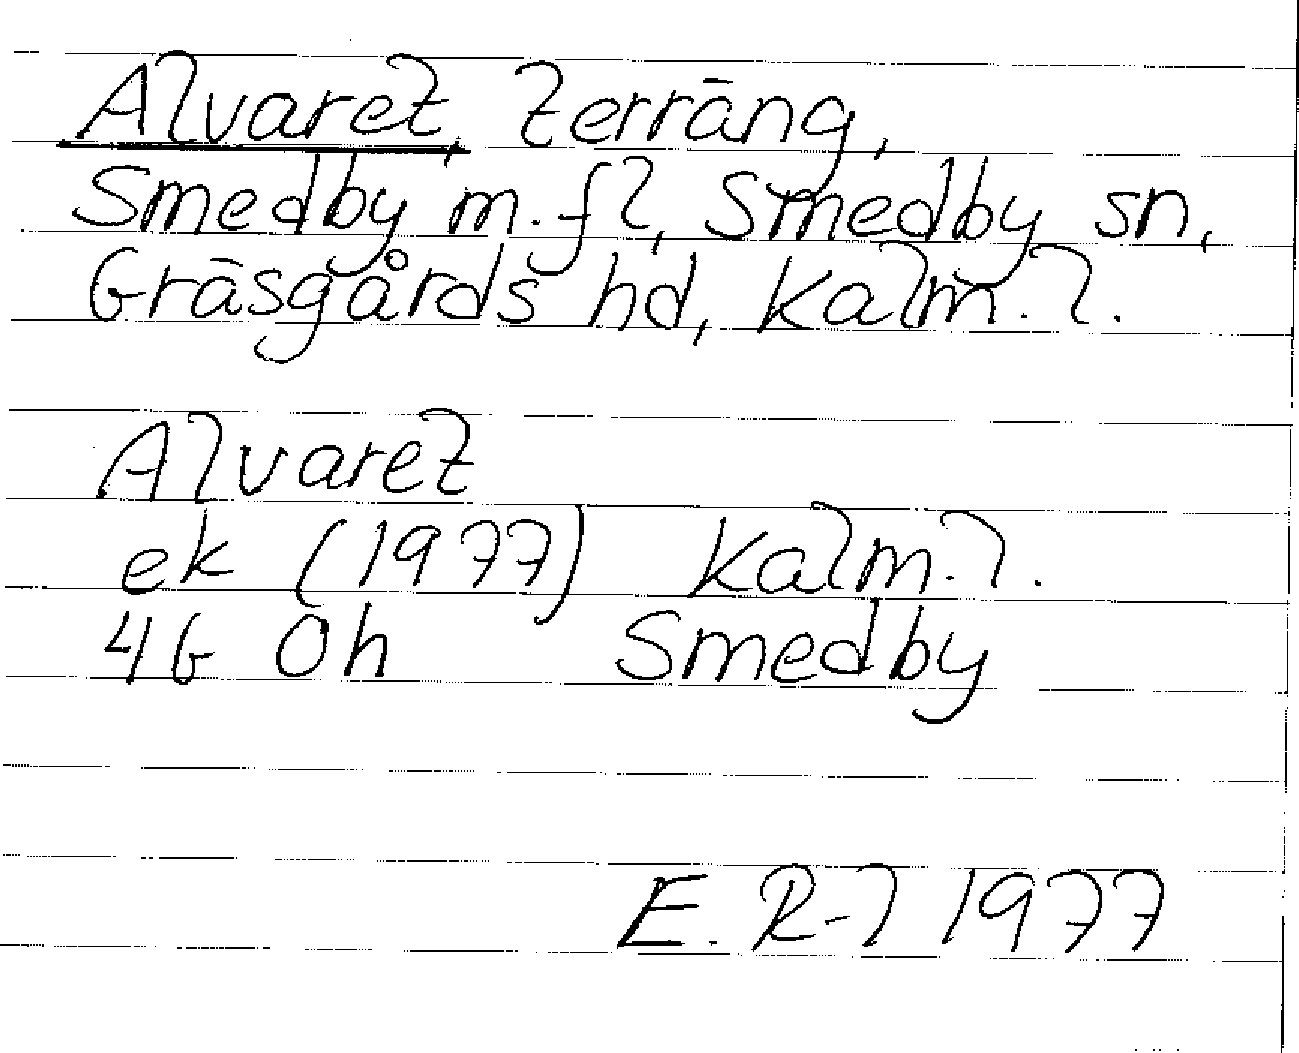 Alvaret, terräng,
Smedby m.fl, Smedby sn,
Gräsgårds hd, Kalm. l.
Alvaret
ek (1977) Kalm. l.
4G 0h Smedby
E. R-l 1977